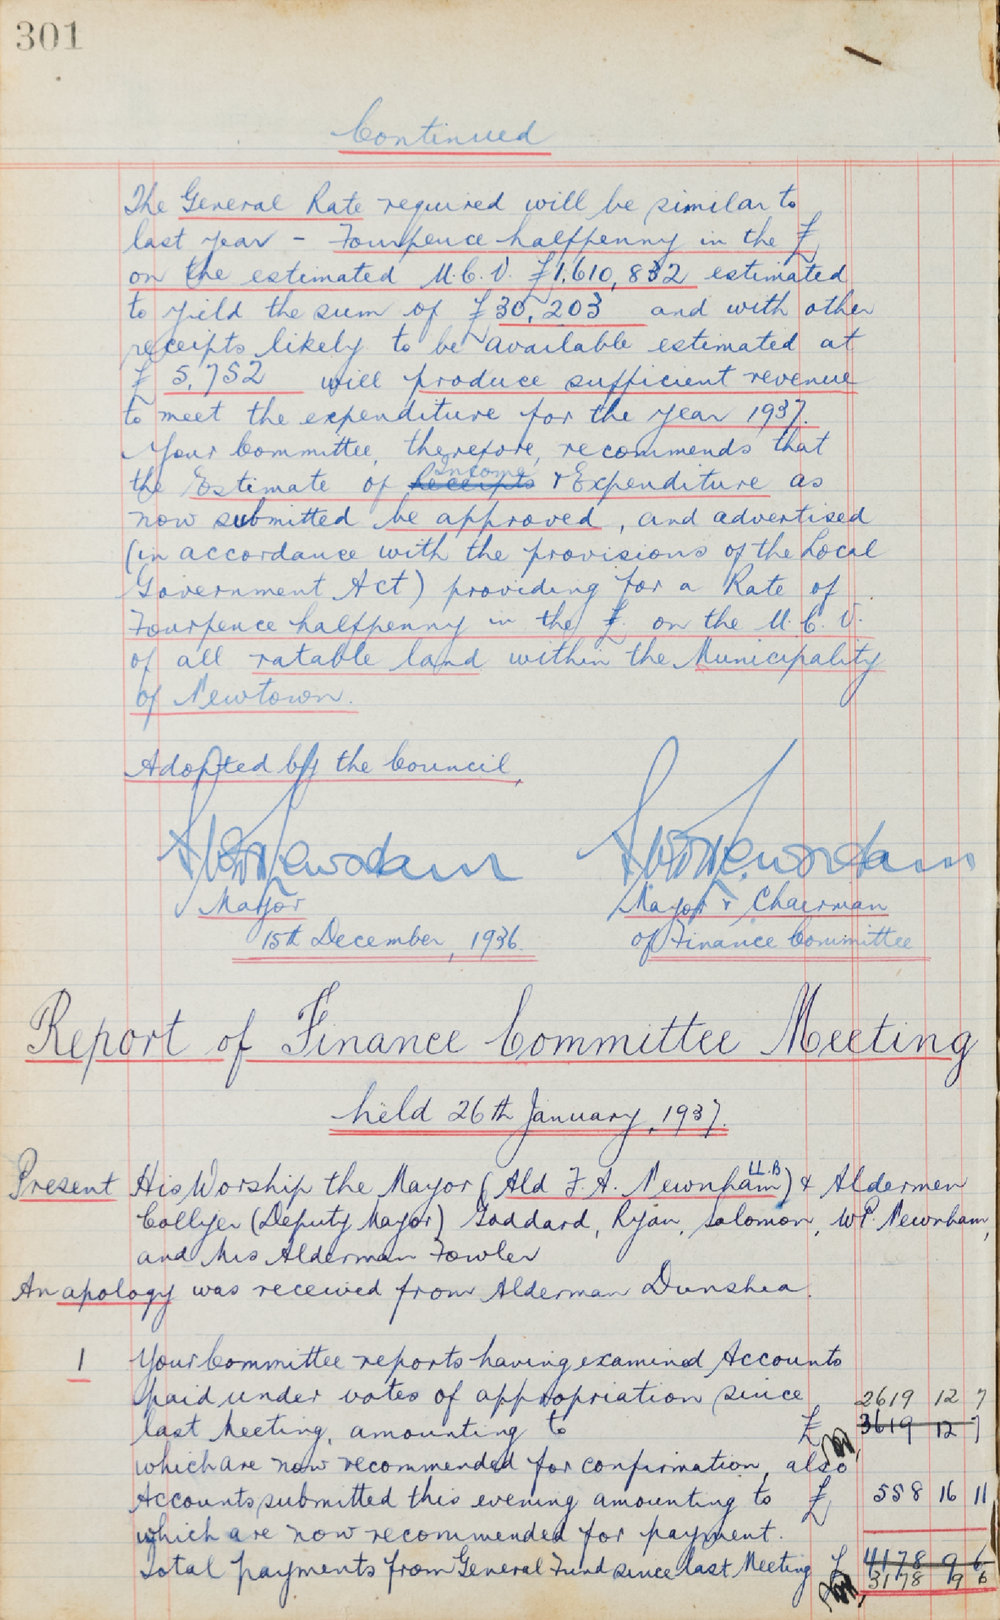 301
Continued
The General Rate required will be similar to
last year - Fourpence halfpenny in the £
on the estimated U.C.V. £1,610,832 estimated
to yield the sum of £30,203 and with other
receipts likely to be available estimated at
£ 5,752 will produce sufficient revenue
to meet the expenditure for the year 1937.
Your Committee, therefore, recommends that
the Estimate of Receipts Income & Expenditure as
now submitted be approved, and advertised
(in accordance with the provisions of the Local
Government Act) providing for a Rate of
Fourpence halfpenny in the £. on the U.C.V.
of all ratable land within the Municipality
of Newtown.
Adopted by the Council,
Mayor
Mayor & Chairman
15th December, 1936.
of Finance Committee
Report of Finance Committee Meeting
held 26th January, 1937.
Present His Worship the Mayor (Ald F.A. Newnham LL.B) & Aldermen
Collyer (Deputy Mayor) Goddard, Ryan, Solomon, W.P. Newnham,
and Mrs Alderman Fowler
An apology was received from Alderman Dunshea.
1 Your Committee reports having examined Accounts
paid under votes of appropriation since 2619 12 7
last Meeting, amounting to £ 3619 12 7
which are now recommended for confirmation, also
Accounts submitted this evening amounting to £ 558 16 11
which are now recommended for payment.
Total payments from General Fund since last Meeting £ 4178 9 6
3178 9 6